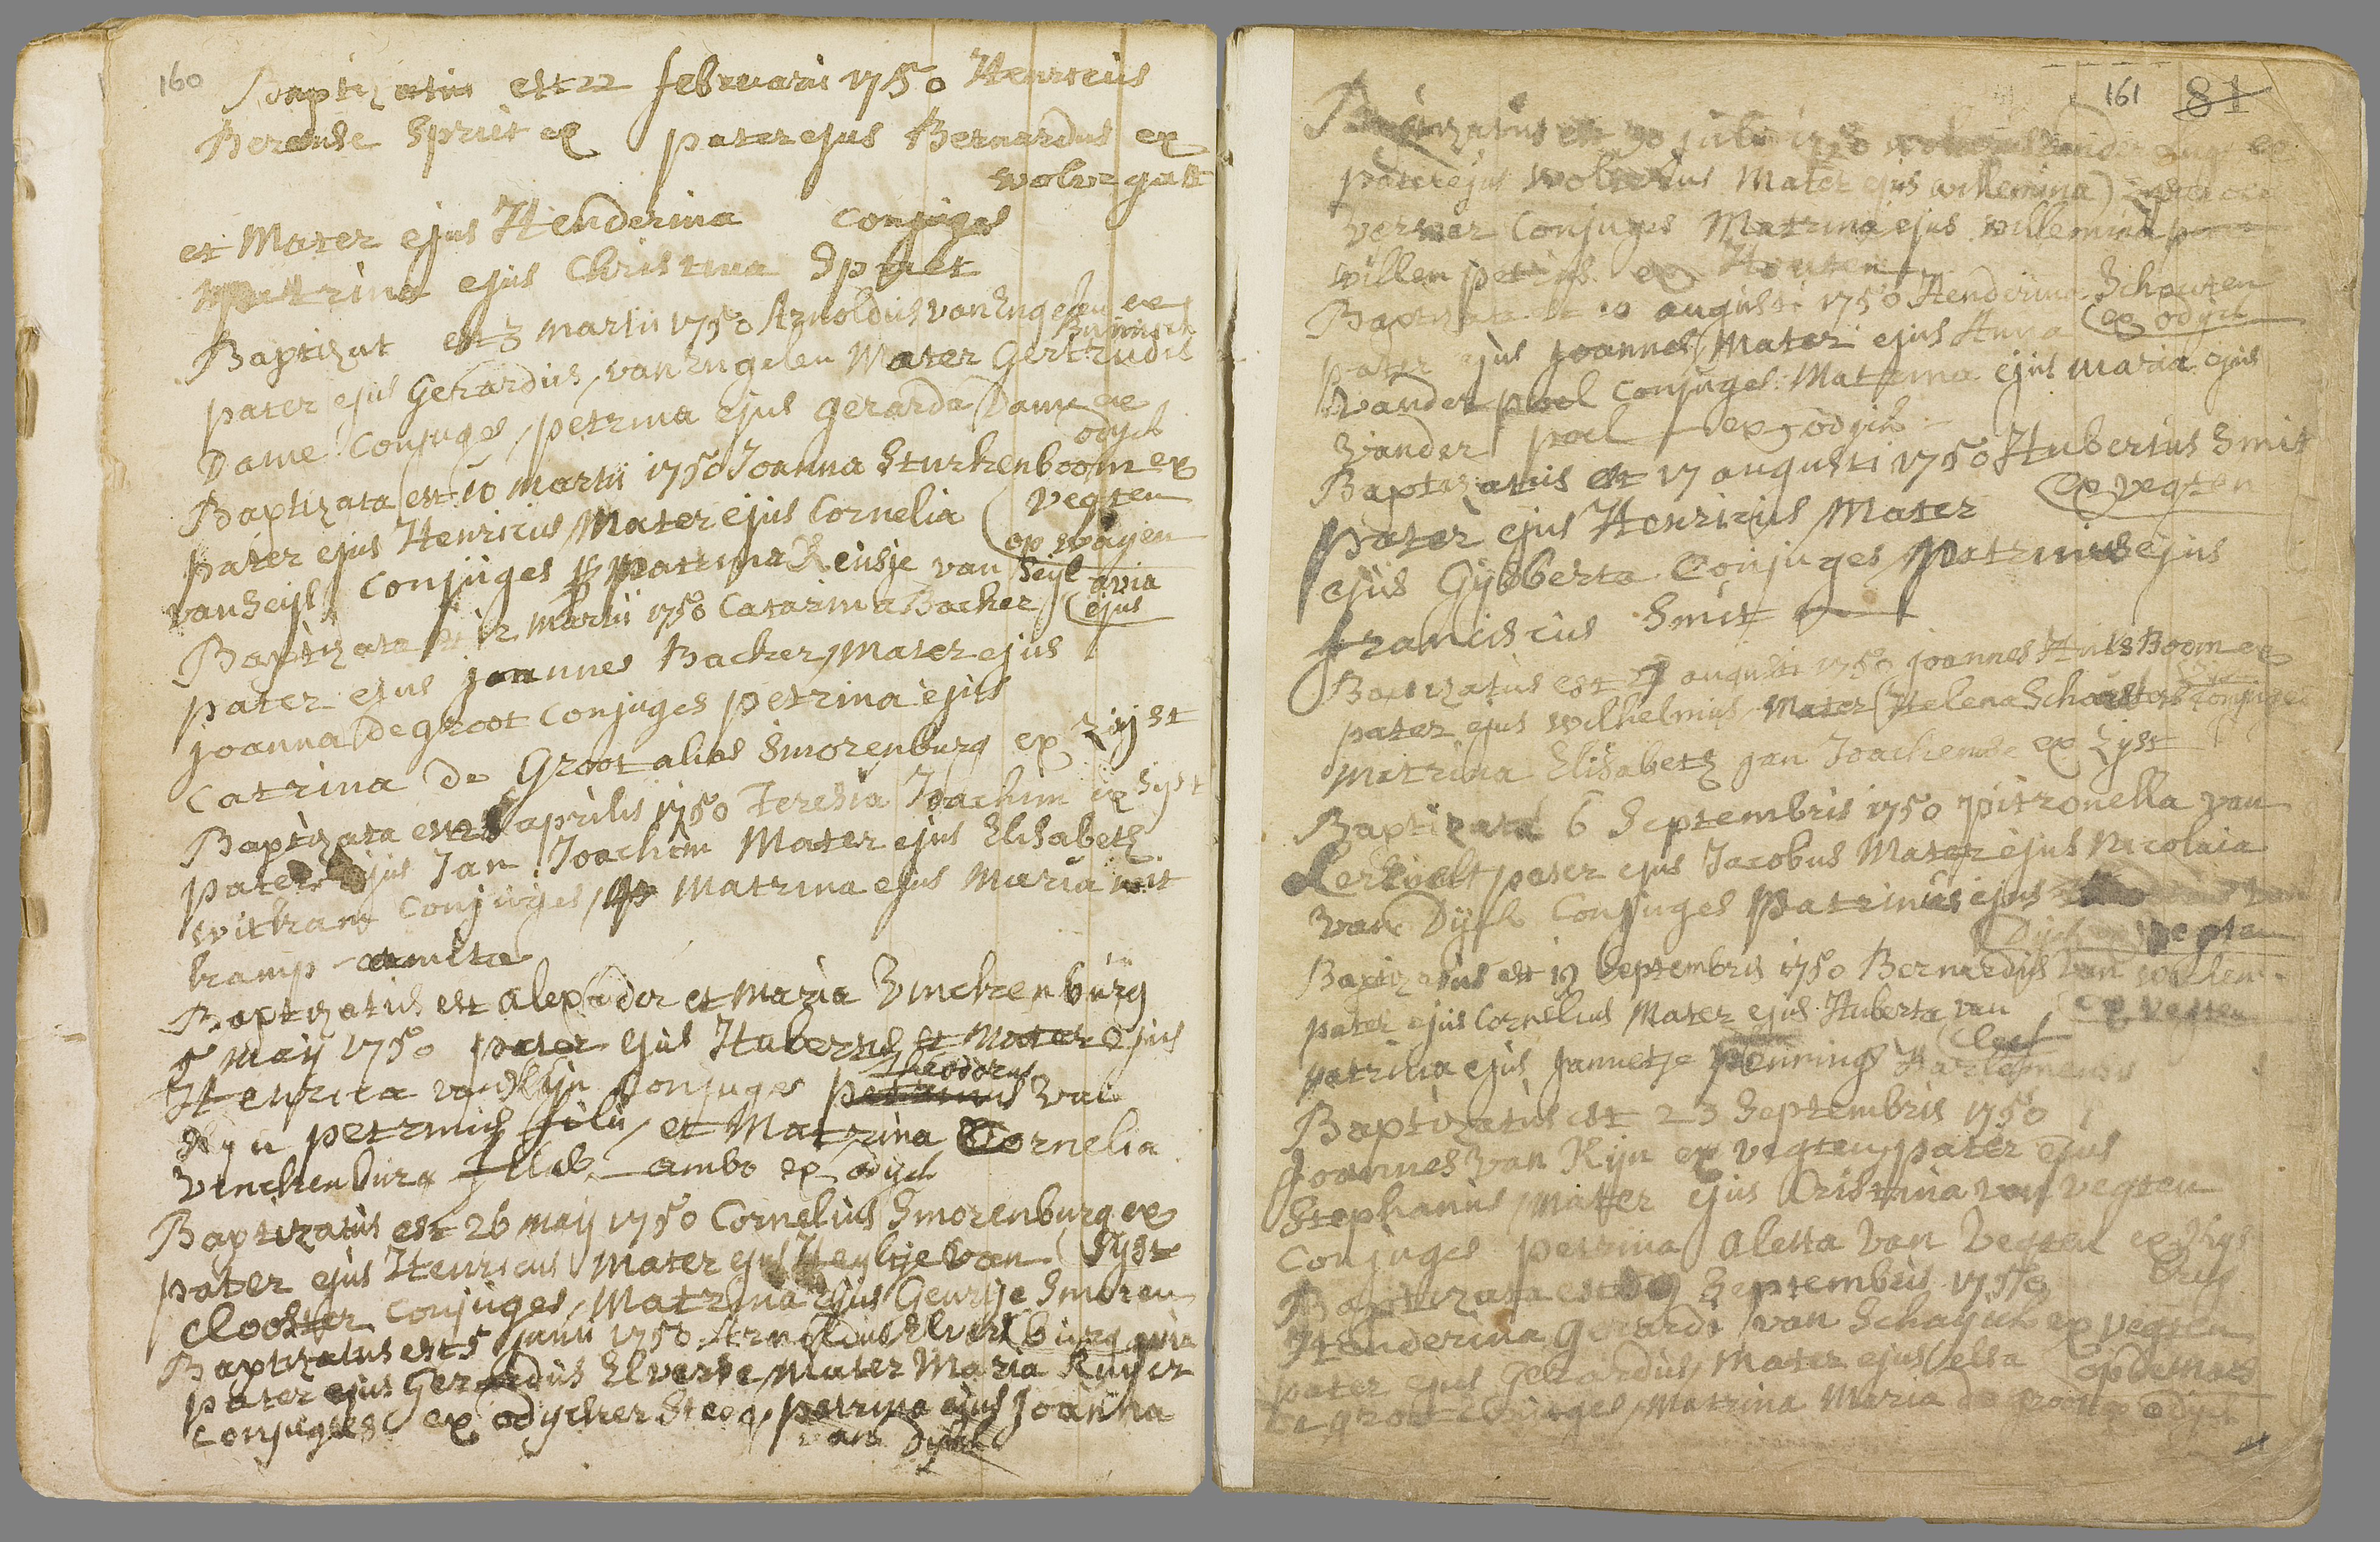 160
Baptizatus est 22 februarii 1750 Henricus
Berendse Spruit ex pater ejus Bernardus ex
wolvegatt
et Mater ejus Henderina conjuges
Matrina ejus Christina Spruit
Baptizat est 3 martii 1750 Arnoldus van Engelen ex
Bunnick
pater ejus Gerardus van Engelen Mater Gertrudis
Dame Conjuges petrina ejus gerarda Dame ex
odijck
Baptizata est 10 martii 1750 Joanna Sturkenboom ex
vegten
pater ejus Henricus Mater ejus Cornelia
van Seijl conjuges patrina Reusje van Seyl
avia ejus
Baptizata est 12 martii 1750 Catarina Backer
pater ejus joannes Backer Mater ejus
joanna De groot conjuges petrina ejus
Catrina de Groot alias Smorenburg ex Zijst
Baptizata est aprilis 1750 Teresia Joachim ex Syst
pater ejus Jan Joachim Mater ejus Elisabeth
witkam Conjuges Matrina ejus Maria wit
kamp amita
Baptizatus est alexader et maria Vinckenburg
5 may 1750 pater ejus Hubertus et Mater ejus
Henrica van Rijn Conjuges
Theodorus van
Rijn petrinus filii et Matrina Cornelia
Vinckenburg ambo ex odijck
Baptizatus est 26 may 1750 Cornelius Smorenburg ex
Syst
pater ejus Henricus Mater ejus Heyltje van
Clooster conjuges Matrina ejus Geurtje Smoren
burg
Baptizatus est 5 junii 1750 Arnoldus Elvers
pater ejus Gerardus Elverse mater Maria Ruyer
conjuges ex odycker Steeg petrina ejus Joanna
van Dyck
161 81
Baptizatus est 30 julii 1750
pater ejus Wolterus Mater ejus willemina
vermeer Conjuges Matrina ejus willemina
willem ex Houten
Baptizata est 10 augusti 1750 Henderina Schouten
ex odijck
pater ejus joannes Mater ejus Anna
vander poel conjuges Matrina ejus maria ejus
vander poel ex odijck
Baptizatus est 17 augusti 1750 Hubertus Smit
ex vegten
pater ejus Henricus Mater
ejus Gijsberta Conjuges patrinus ejus
franciscus Smit
Baptizatus est augusti 1750 joannes Huls Boom ex
pater ejus wilhelmus Mater Helena conjuges
matrina Elisabeth jan Joachemse ex Zijst
Baptizata 6 Septembris 1750 pitronella van
pater ejus Jacobus Mater ejus Nicolaia
van Dijck Conjuges patrinus ejus van
Dijck vegten
Baptizatus est 19 septembris 1750 Bernardus van
ex vegten
pater ejus Cornelius Mater ejus Huberta van
Cleef
patrina ejus Jannetje penning Harlemensis
Baptizatus est 23 Septembris 1750
Joannes van Rijn ex vegten pater ejus
Stephanus mater ejus Cristina van vegten
Conjuges petrina Aletta van vegten ex
brug
Baptizata est Septembris 1750
Henderina Gerardi van Schayck ex vegten
pater ejus Gerardus Mater ejus elsa
op de mars
de groot conjuges Matrina Maria de groot ex odijck